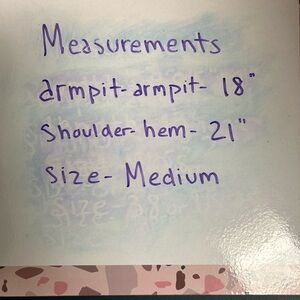 Measurements
armpit-armpit- 18"
Shoulder-hem- 21"
Size- Medium